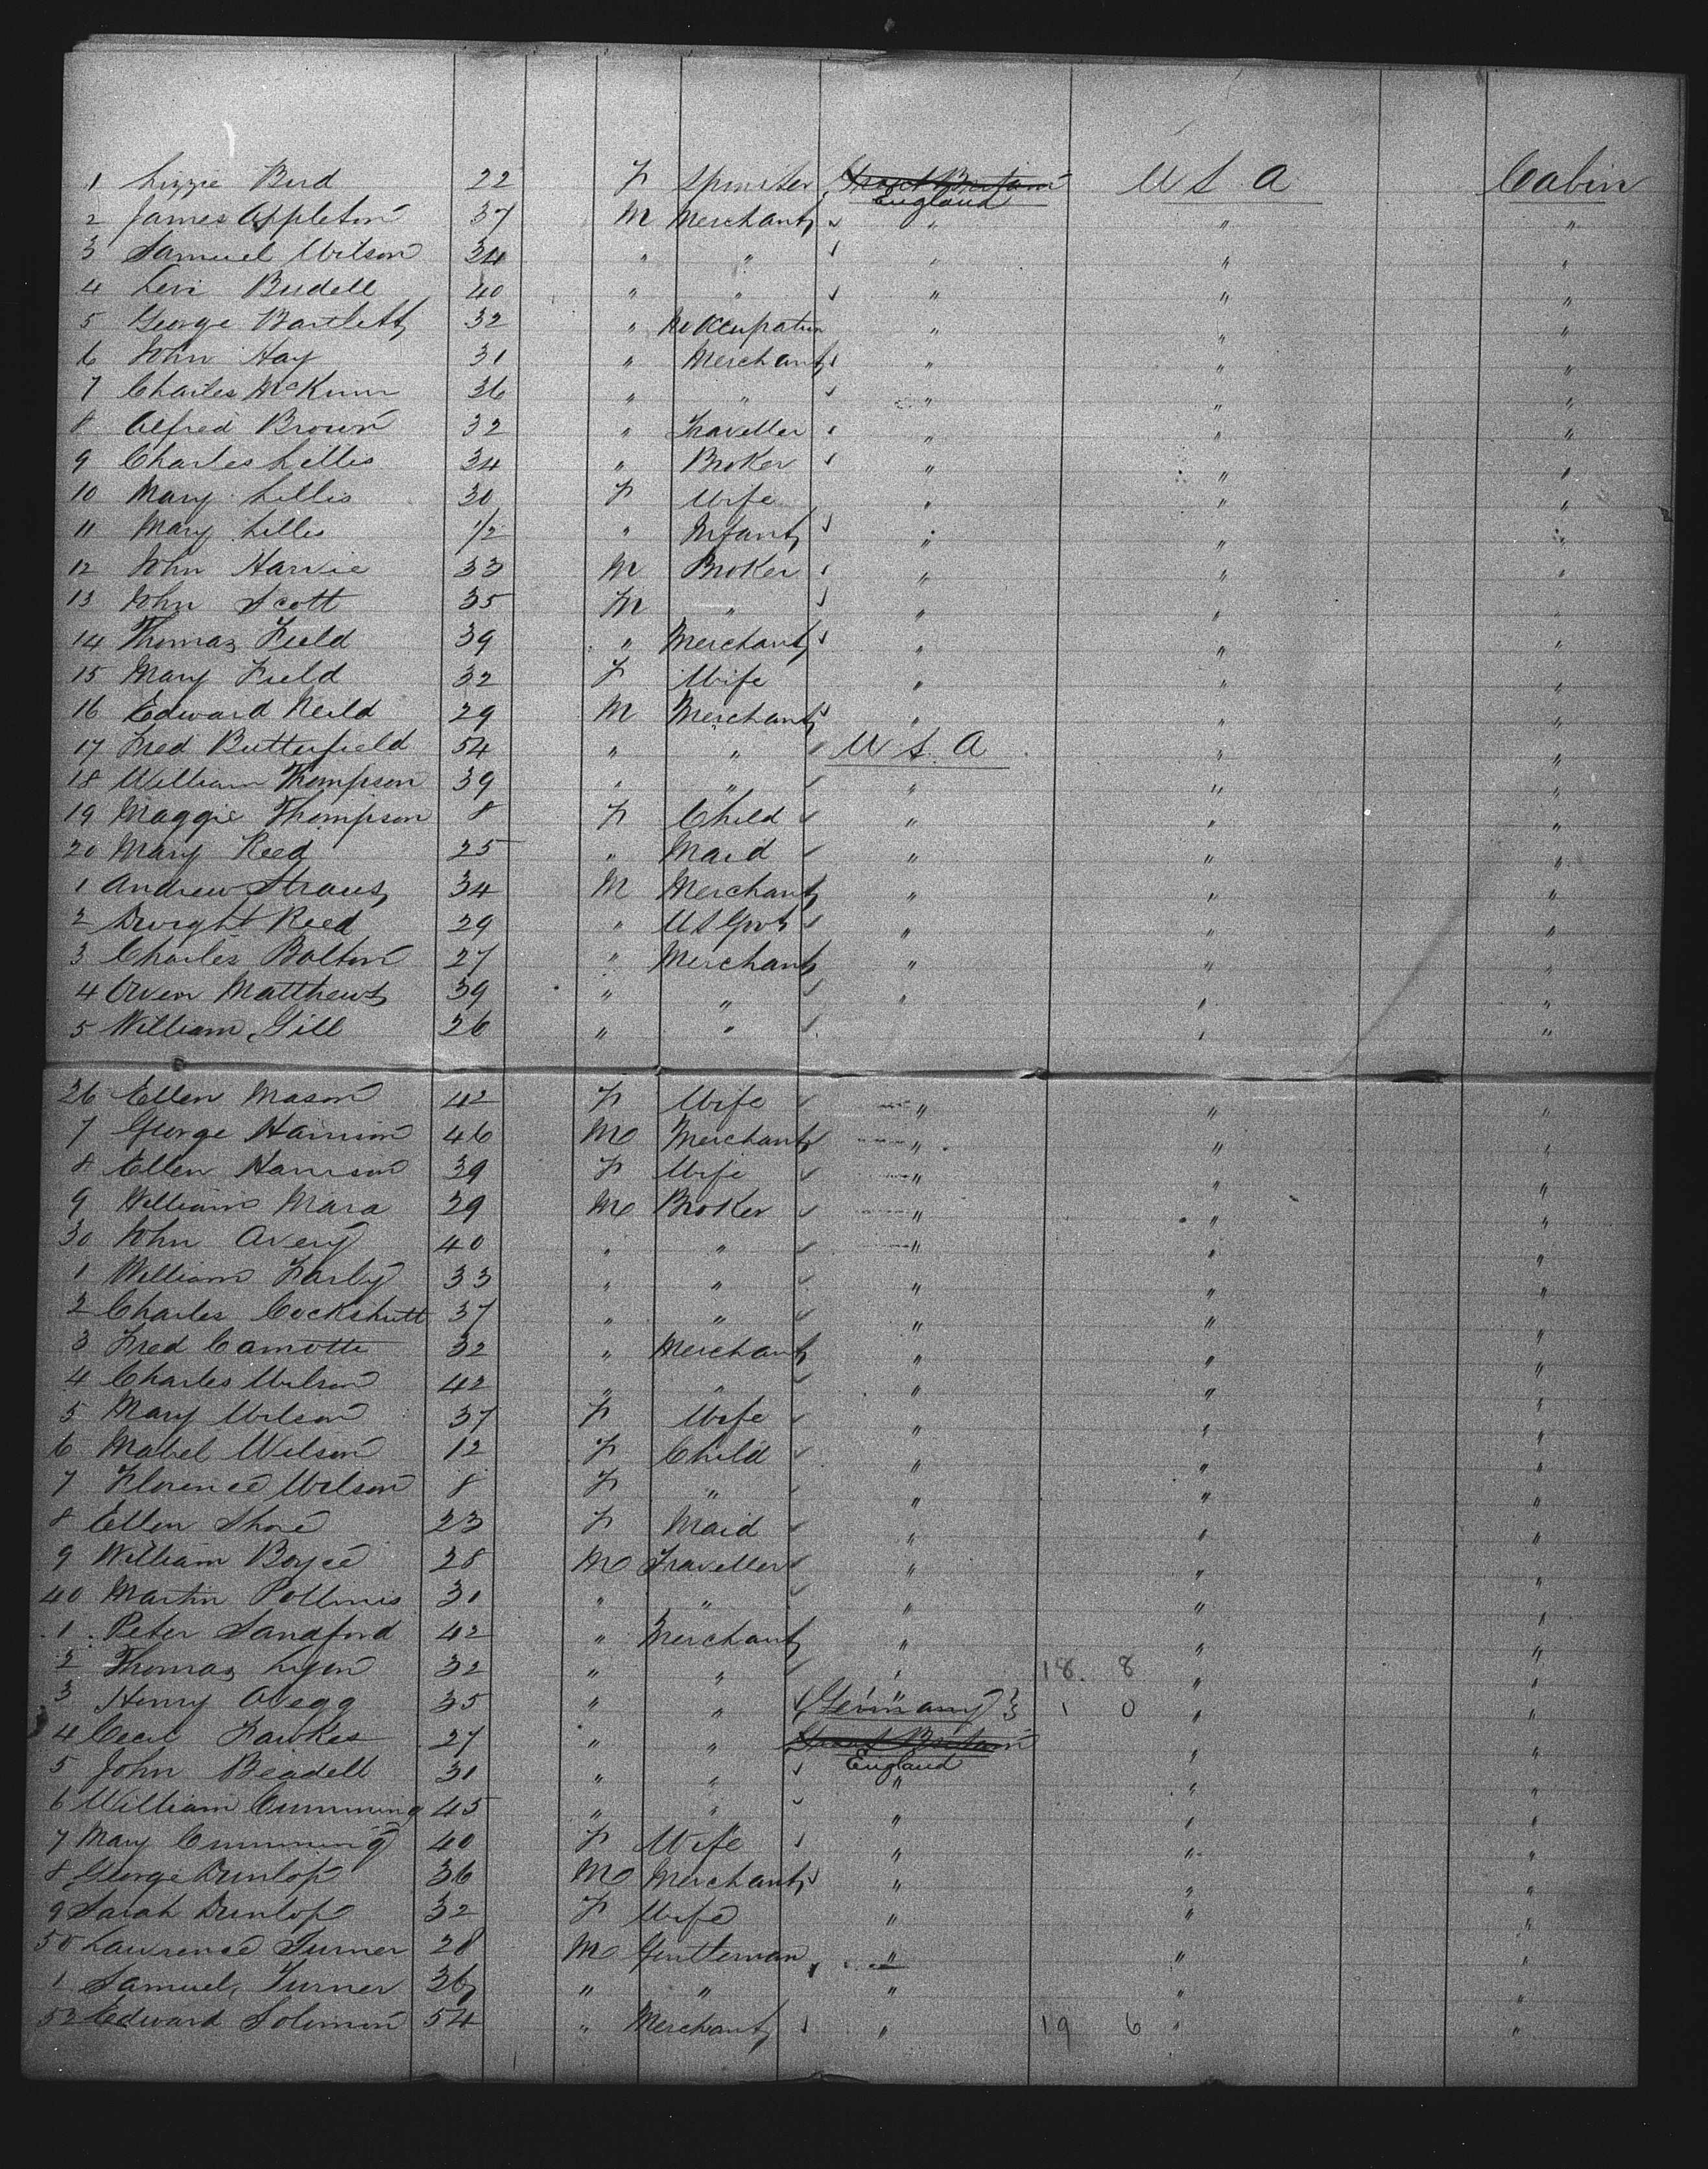 1 Lizzie Bird 22 F Spinster Great Britain England U S A Cabin
2 James Appleton 37 M Merchant " " "
3 Samuel Wilson 34 " " " " "
4 Levi Budell 40 " " " " "
5 George Bartlett 32 " No Occupation " " "
6 John Hay 31 " Merchant " " "
7 Charles McKinn 36 " " " " "
8 Alfred Brown 32 " Traveller " " "
9 Charles Lillis 34 " Broker " " "
10 Mary Lillis 30 F Wife " " "
11 Mary Lillis 1/2 " Infant " " "
12 John Harvie 33 M Broker " " "
13 John Scott 35 M " " " "
14 Thomas Field 39 " Merchant " " "
15 Mary Field 32 F Wife " " "
16 Edward Neild 29 M Merchant " " "
17 Fred Butterfield 54 " " U S A " "
18 William Thompson 39 " " " " "
19 Maggie Thompson 8 F Child " " "
20 Mary Reed 25 " Maid " " "
1 Andrew Straus 34 M Merchant " " "
2 Dwight Reed 29 " U S Govt " " "
3 Charles Bolton 27 " Merchant " " "
4 Owen Matthews 39 " " " " "
5 William Gill 26 " " " "
26 Ellen Mason 42 F Wife " " "
7 George Harrison 46 M Merchant " " "
8 Ellen Harrison 39 F Wife " " "
9 William Mara 29 M Broker " " "
30 John Avery 40 " " " " "
1 William Farby 33 " " " " "
2 Charles Cockshutt 37 " " " " "
3 Fred Camotte 32 " Merchant " " "
4 Charles Wilson 42 " " " " "
5 Mary Wilson 37 F Wife " " "
6 Mabel Wilson 12 F Child " " "
7 Florence Wilson 8 F " " " "
8 Ellen Shore 23 F Maid " " "
9 William Boyce 28 M Traveller " " "
40 Martin Pollinis 31 " " " " "
1 Peter Sandford 42 " Merchant " " "
2 Thomas Lyon 32 " " " 18 8 " "
3 Henry Avegg 35 " " Germany 1 0 " "
4 Cecil Fawkes 27 " " Great Britain England " "
5 John Beadell 31 " " " " "
6 William Cumming 45 " " " " "
7 Mary Cumming 40 F Wife " " "
8 George Dunlop 36 M Merchant " " "
9 Sarah Dunlop 32 F Wife " " "
50 Lawrence Turner 28 M Gentleman " " "
1 Samuel Turner 36 " " " " "
52 Edward Solomon 54 " Merchant " 19 6 " "